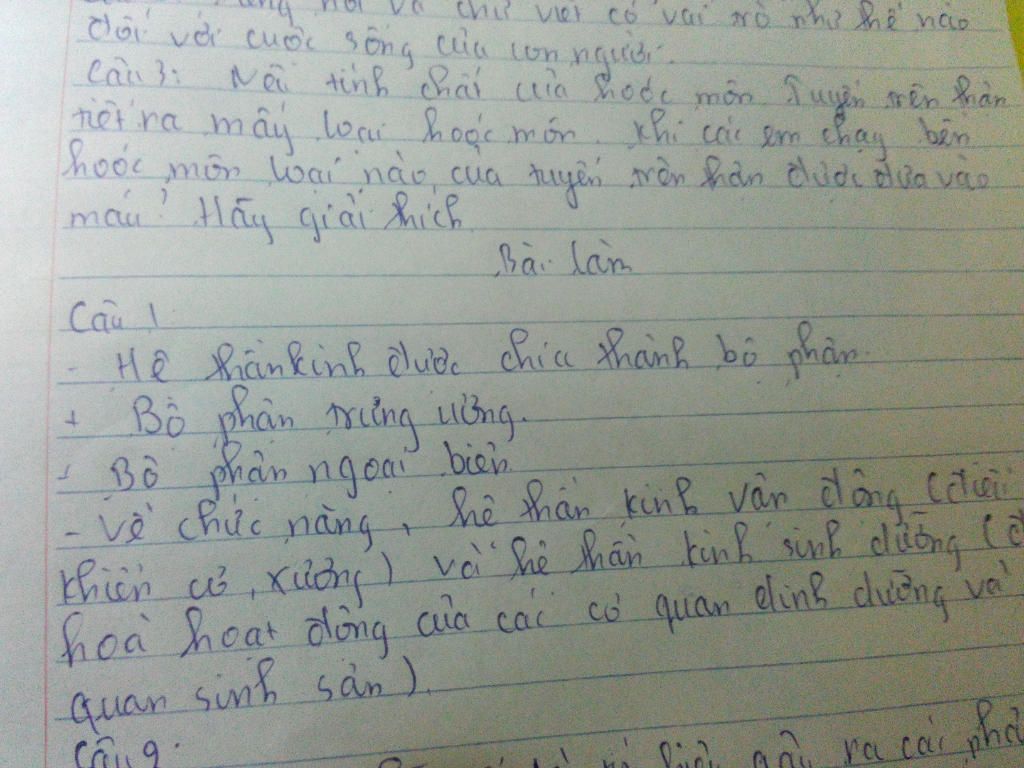 nói và chữ viết có vai trò như thế nào
đối với cuộc sống của con người.
Câu 3: Nêu tính chất của hoóc môn. Tuyến trên thận
tiết ra mấy loại hoóc môn. Khi các em chạy bền
hoóc môn loại nào của tuyến trên thận được đưa vào
máu? Hãy giải thích
Bài làm
Câu 1
- Hệ thần kinh được chia thành bộ phận.
+ Bộ phận trung ương.
+ Bộ phận ngoại biên
- Về chức năng, hệ thần kinh vận động (điều
khiển cơ, xương) và hệ thần kinh sinh dưỡng (đ
hoà hoạt động của các cơ quan dinh dưỡng và
quan sinh sản).
Câu 2:
ra các